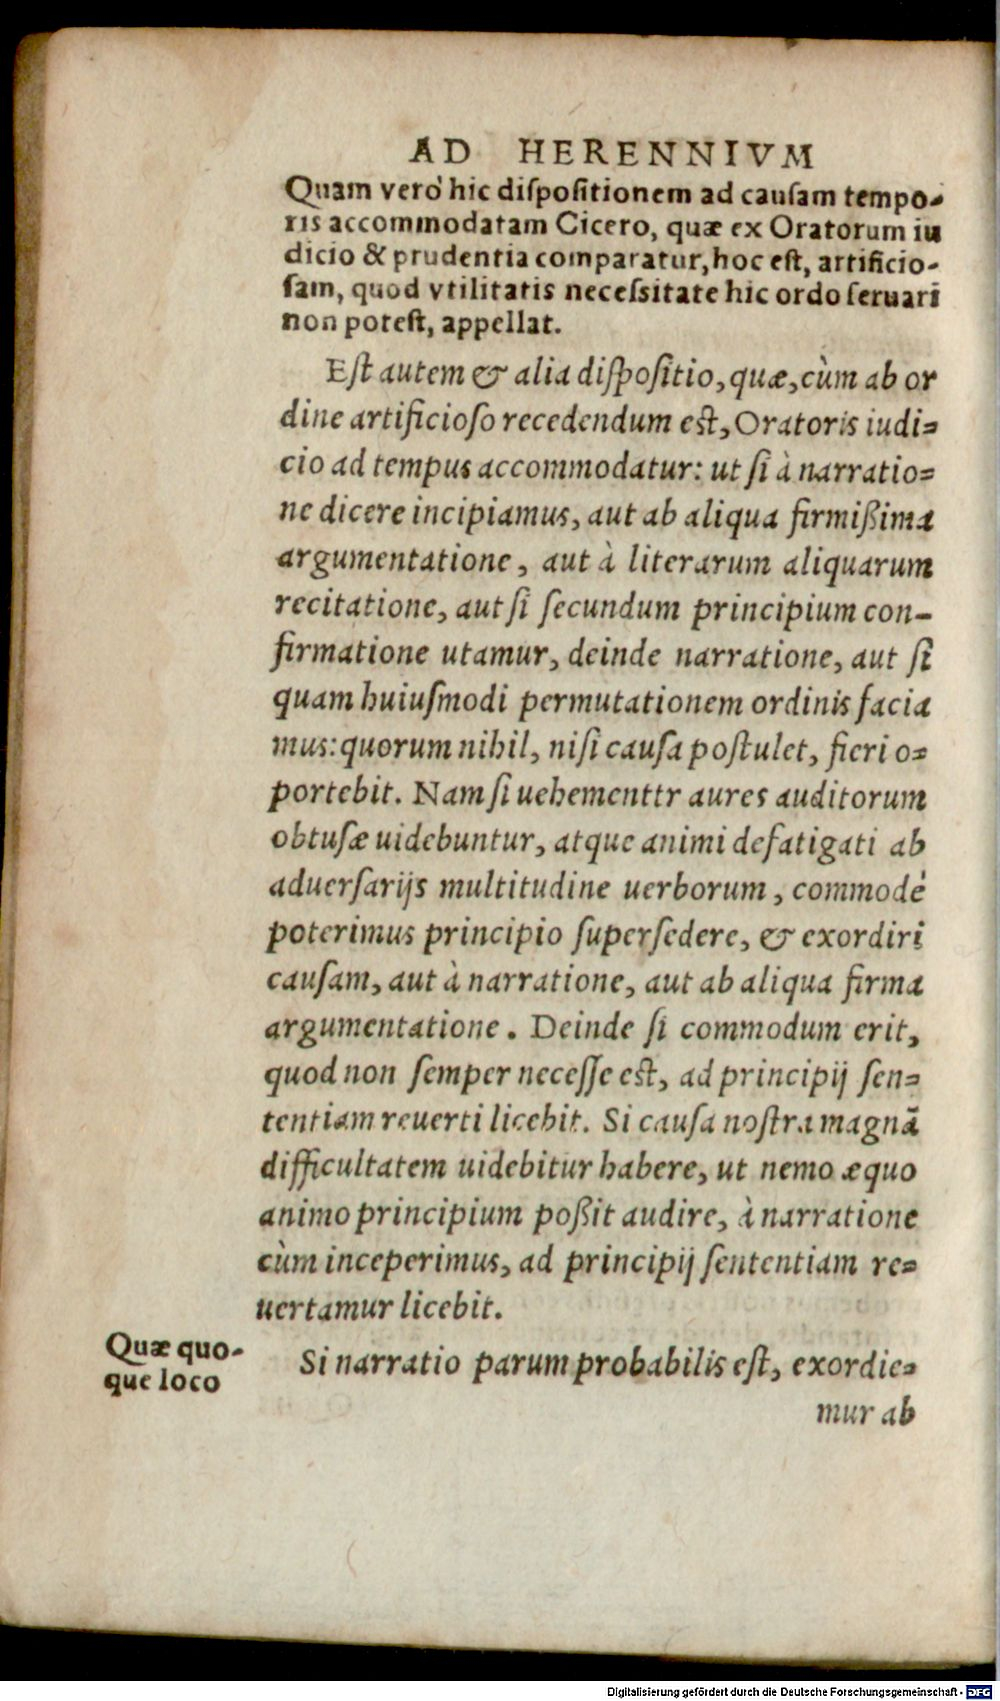 AD HERENNIVM
Quam verò hic dispositionem ad causam tempo-
ris accommodatam Cicero, quæ ex Oratorum iu
dicio & prudentia comparatur, hoc est, artificio-
sam, quod vtilitatis necessitate hic ordo seruari
non potest, appellat.
Est autem & alia dispositio, quæ, cùm ab or
dine artificioso recedendum est, Oratoris iudi=
cio ad tempus accommodatur: ut si à narratio=
ne dicere incipiamus, aut ab aliqua firmißima
argumentatione, aut à literarum aliquarum
recitatione, aut si secundum principium con-
firmatione utamur, deinde narratione, aut si
quam huiusmodi permutationem ordinis facia
mus: quorum nihil, nisi causa postulet, fieri o=
portebit. Nam si uehementtr aures auditorum
obtusæ uidebuntur, atque animi defatigati ab
aduersarijs multitudine uerborum, commodè
poterimus principio supersedere, & exordiri
causam, aut à narratione, aut ab aliqua firma
argumentatione. Deinde si commodum erit,
quod non semper necesse est, ad principij sen=
tentiam reuerti licebit. Si causa nostra magnã
difficultatem uidebitur habere, ut nemo æquo
animo principium poßit audire, à narratione
cùm inceperimus, ad principij sententiam re=
uertamur licebit.
Quæ quo-
que loco
Si narratio parum probabilis est, exordie=
mur ab
Digitalisierung gefördert durch die Deutsche Forschungsgemeinschaft - DFG